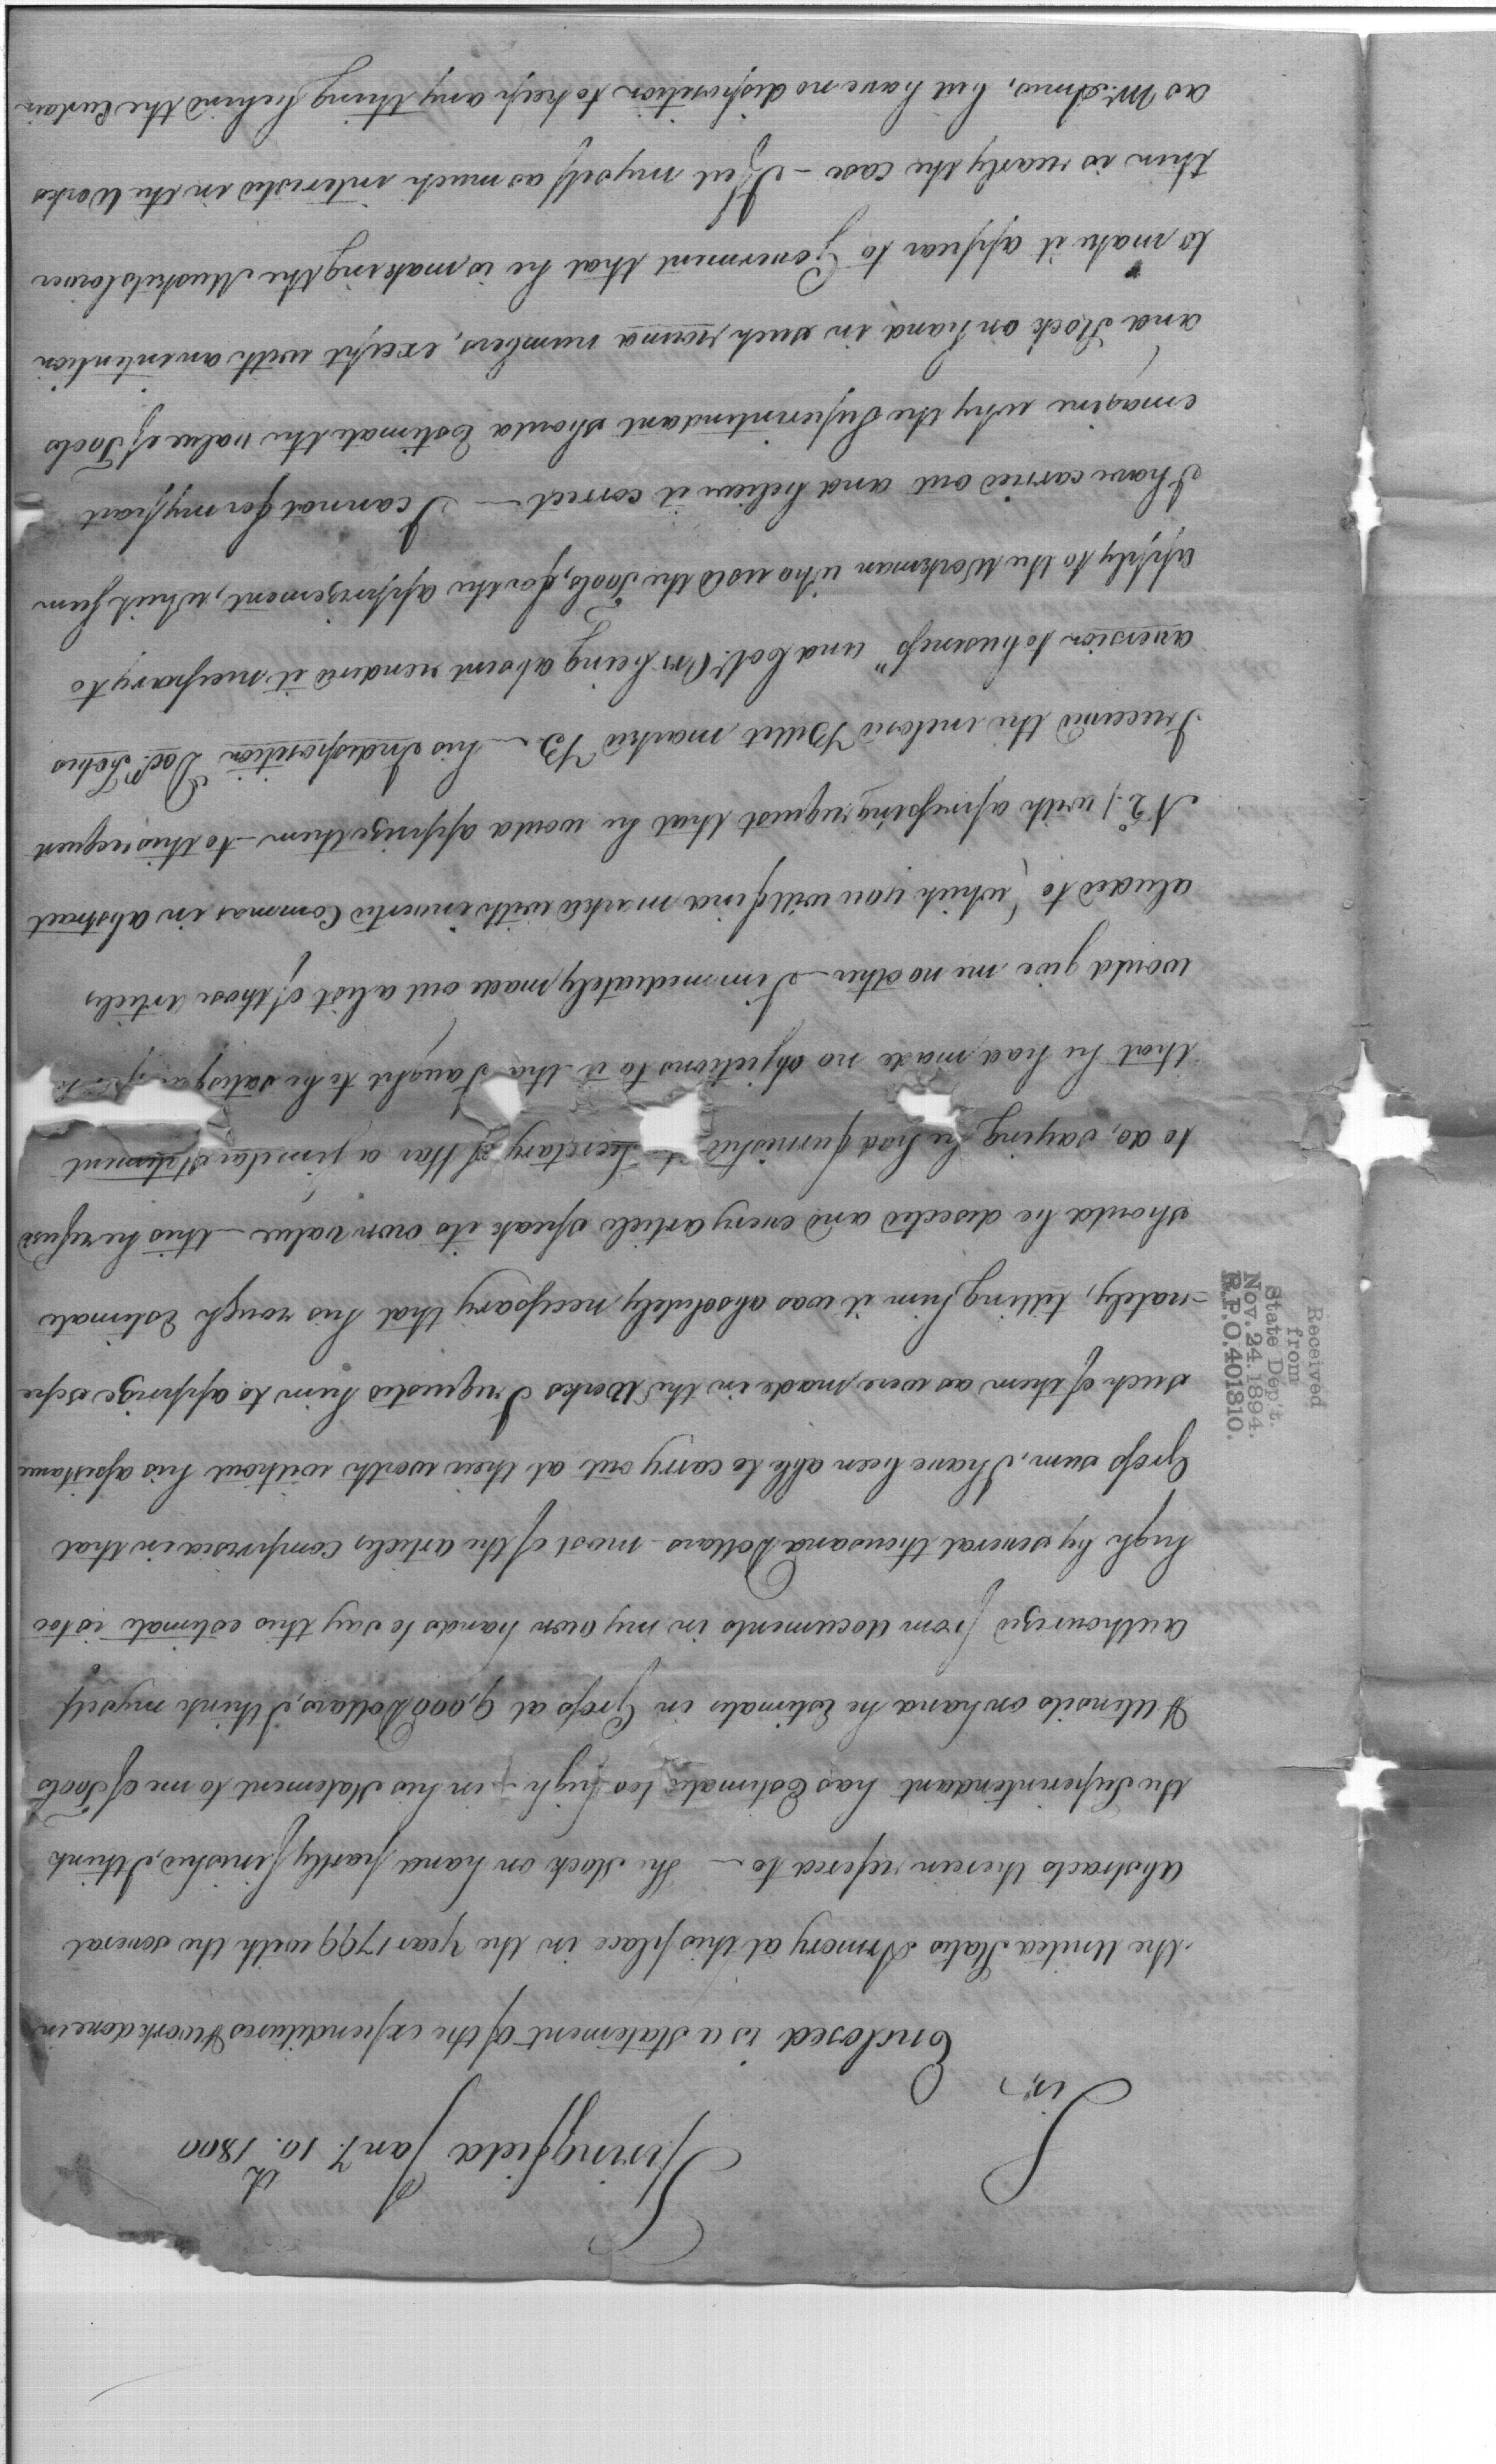 Springfield Jany. 10th. 1800
Sir,
Enclosed is a statement of the expenditures & work done in
the United States Armory at this place in the Year 1799 with the several
abstracts therein refered to — The Stock on hand partly finished, I think
the Superintendant has Estimated too high — in his Statement to me of Tools
& Utensils on hand he Estimates in Gross at 9,000 Dollars, I think myself
authourized from documents in my own hands to say this estimate is too
high by several thousand Dollars — most of the articles comprised in that
Gross sum, I have been able to carry out at their worth without his assistance
such of them as were made in the Works I requested him to apprize sepe
=rately, telling him it was absolutely necessary that his rough Estimate
should be disected and every article speak its own value — this he refused
to do, saying he had furnished Secretary of War a similar statement
that he had made no objections to it tha I ought to be
would give me no other — I immediately made out a list of those articles
aluded to (which you will find marked with inverted Commas in abstract
No. 2) with a pressing request that he would apprize them — to this request
I received the inclosed Billet marked B — his Indisposition "Docr. Fobes
aversion to business" and Colo. Orr being absent rendered it necessary to
apply to the Workman who used the Tools, for the apprizement, which sum
I have carried out and believe it correct — I cannot for my part
emagine why the Superintendant should Estimate the value of Tools
and Stock on hand in such round numbers, except with an intention
to make it appear to Government that he is making the Muskets lower
then is really the case — I feel myself as much interested in the Works
as Mr. Ames, but have no disposition to keep any thing behind the Curtain
Received
from
State Dep't.
Nov. 24. 1894.
R.P.O. 401810.